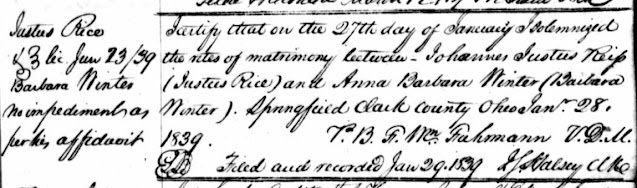 Justus Rice
& 3 lic Jan 23/39
Barbara Winter
no impediment as
per his affidavit
I certify that on the 27th day of January I solemnized
the rites of matrimony between Johannes Justus Reip
(Justus Rice) and Anna Barbara Winter (Barbara
Winter). Springfield Clark County Ohio Jany. 28.
1839. F. Fahrmann V. D. M.
Filed and recorded Jan 29. 1839 Halsey Clk